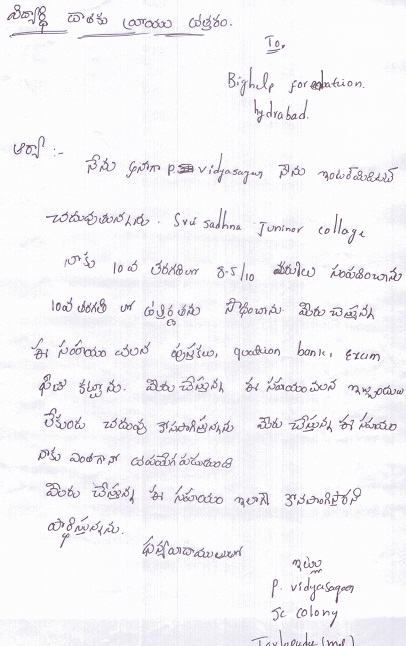 విద్యార్థి దాతకు వ్రాయు ఉత్తరం.
To,
Bighelp foundation.
hydrabad.
ఆర్యా :-
నేను అనగా P vidyasagar నేను ఇంటర్‌మీడియట్
చదువుతున్నాను. Sri sadhna Juninor collage
నాకు 10వ తరగతిలో 8.5/10 మార్కులు సంపాదించాను
10వ తరగతి లో ఉత్తీర్ణతను సాధించాను. మీరు చేస్తున్న
ఈ సహాయం వలన పుస్తకలు, question bank, Exam
ఫీజు కట్టాను. మీరు చేస్తున్న ఈ సహాయం వలన ఇబ్బందులు
లేకుండా చదువు కొనసాగిస్తున్నాను మీరు చేస్తున్న ఈ సహయం
నాకు ఎంతగానో ఉపయోగ పడుతుంది
మీరు చేస్తున్న ఈ సహాయం ఇలాగే కొనసాగించాలని
ప్రార్థిస్తున్నాను.
ఇట్లు
P. vidyasagar
SC colony